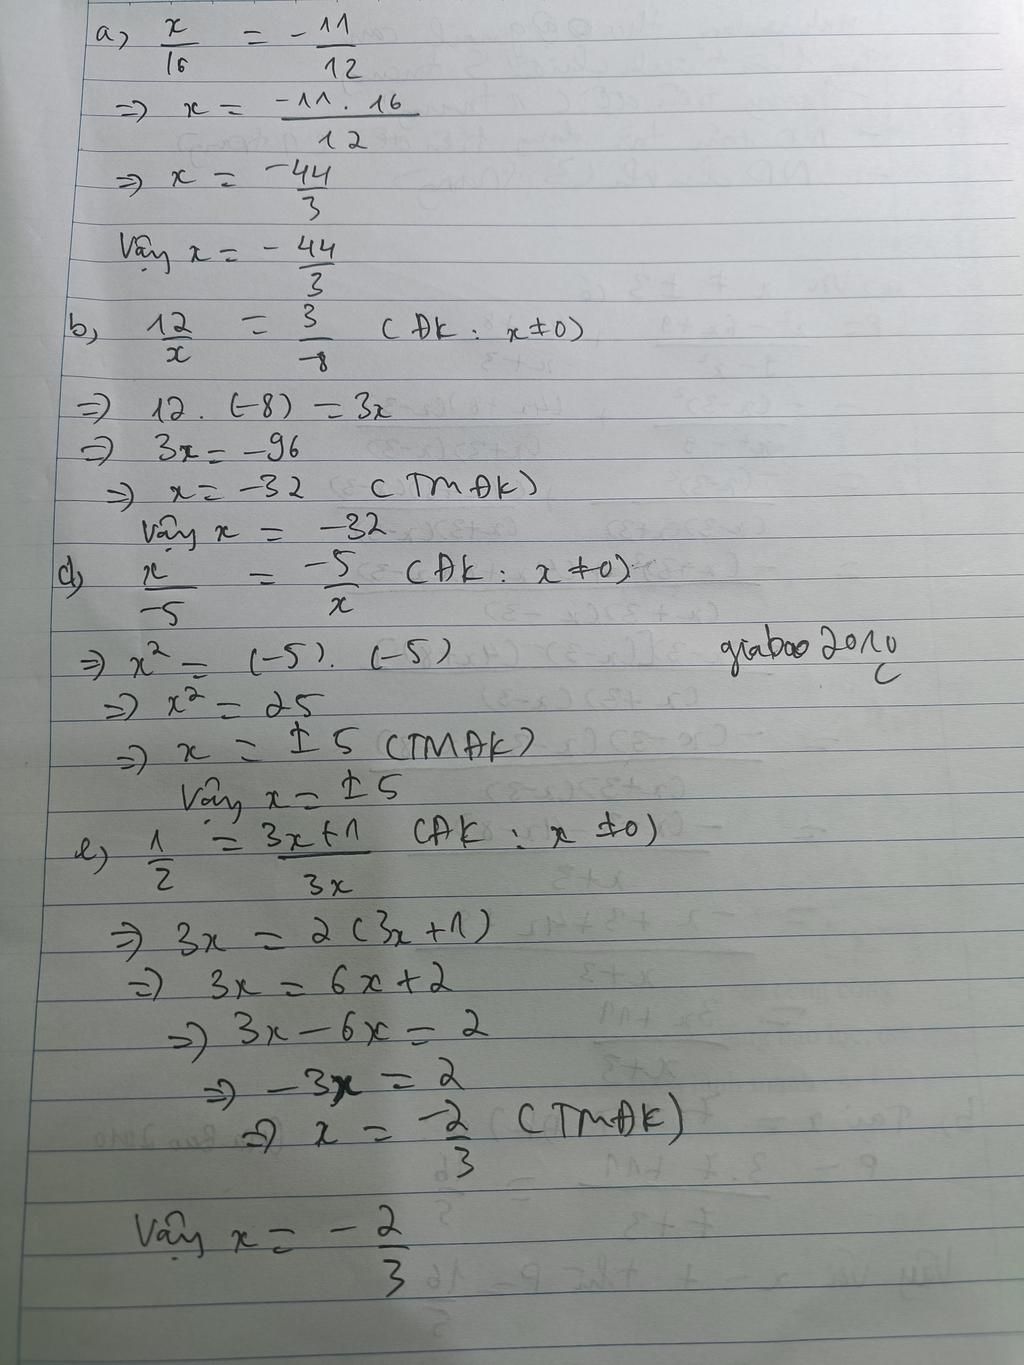 a) x/16 = - 11/12
=> x = -11 . 16/12
=> x = -44/3
Vậy x = - 44/3
b) 12/x = 3/-8 (ĐK : x ≠ 0)
=> 12 . (-8) = 3x
=> 3x = -96
=> x = -32 (TMĐK)
Vậy x = -32
d) x/-5 = -5/x (ĐK : x ≠ 0)
=> x² = (-5) . (-5)
giabao2010
=> x² = 25
=> x = ± 5 (TMĐK)
Vậy x = ± 5
e) 1/2 = 3x+1/3x (ĐK : x ≠ 0)
=> 3x = 2 (3x + 1)
=> 3x = 6x + 2
=> 3x - 6x = 2
=> -3x = 2
=> x = -2/3 (TMĐK)
Vậy x = - 2/3